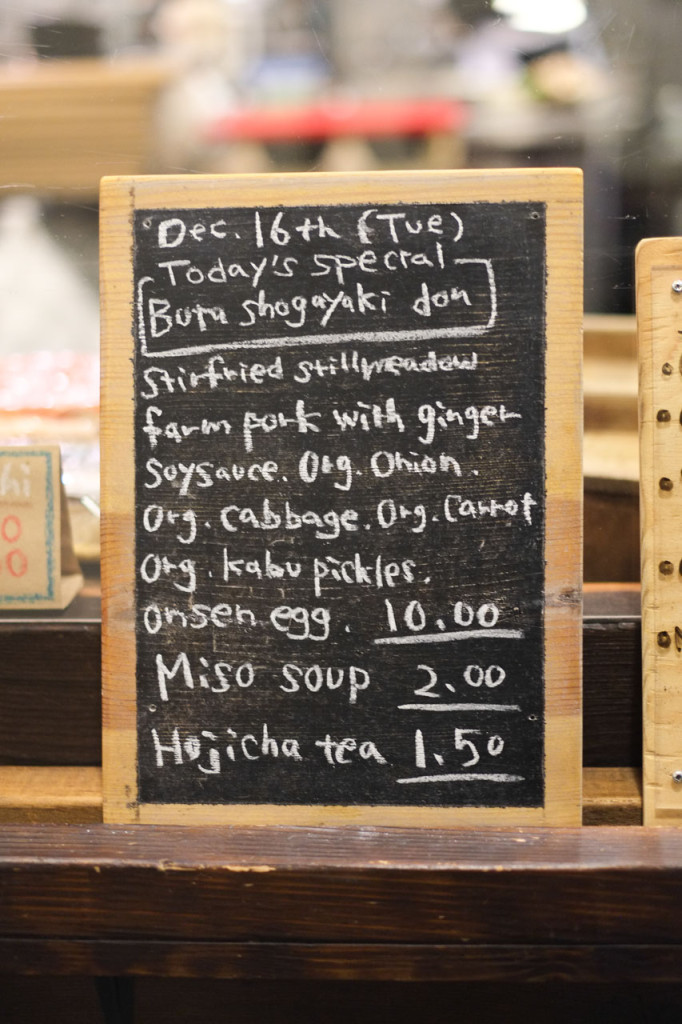 Dec. 16th (Tue)
Today's special
Buta shogayaki don
stirfried stillmeadow
farm pork with ginger
soysauce. Org. Onion.
Org. cabbage. Org. Carrot
Org. kabu pickles.
onsen egg. 10.00
Miso soup 2.00
Hojicha tea 1.50
hi
0
50